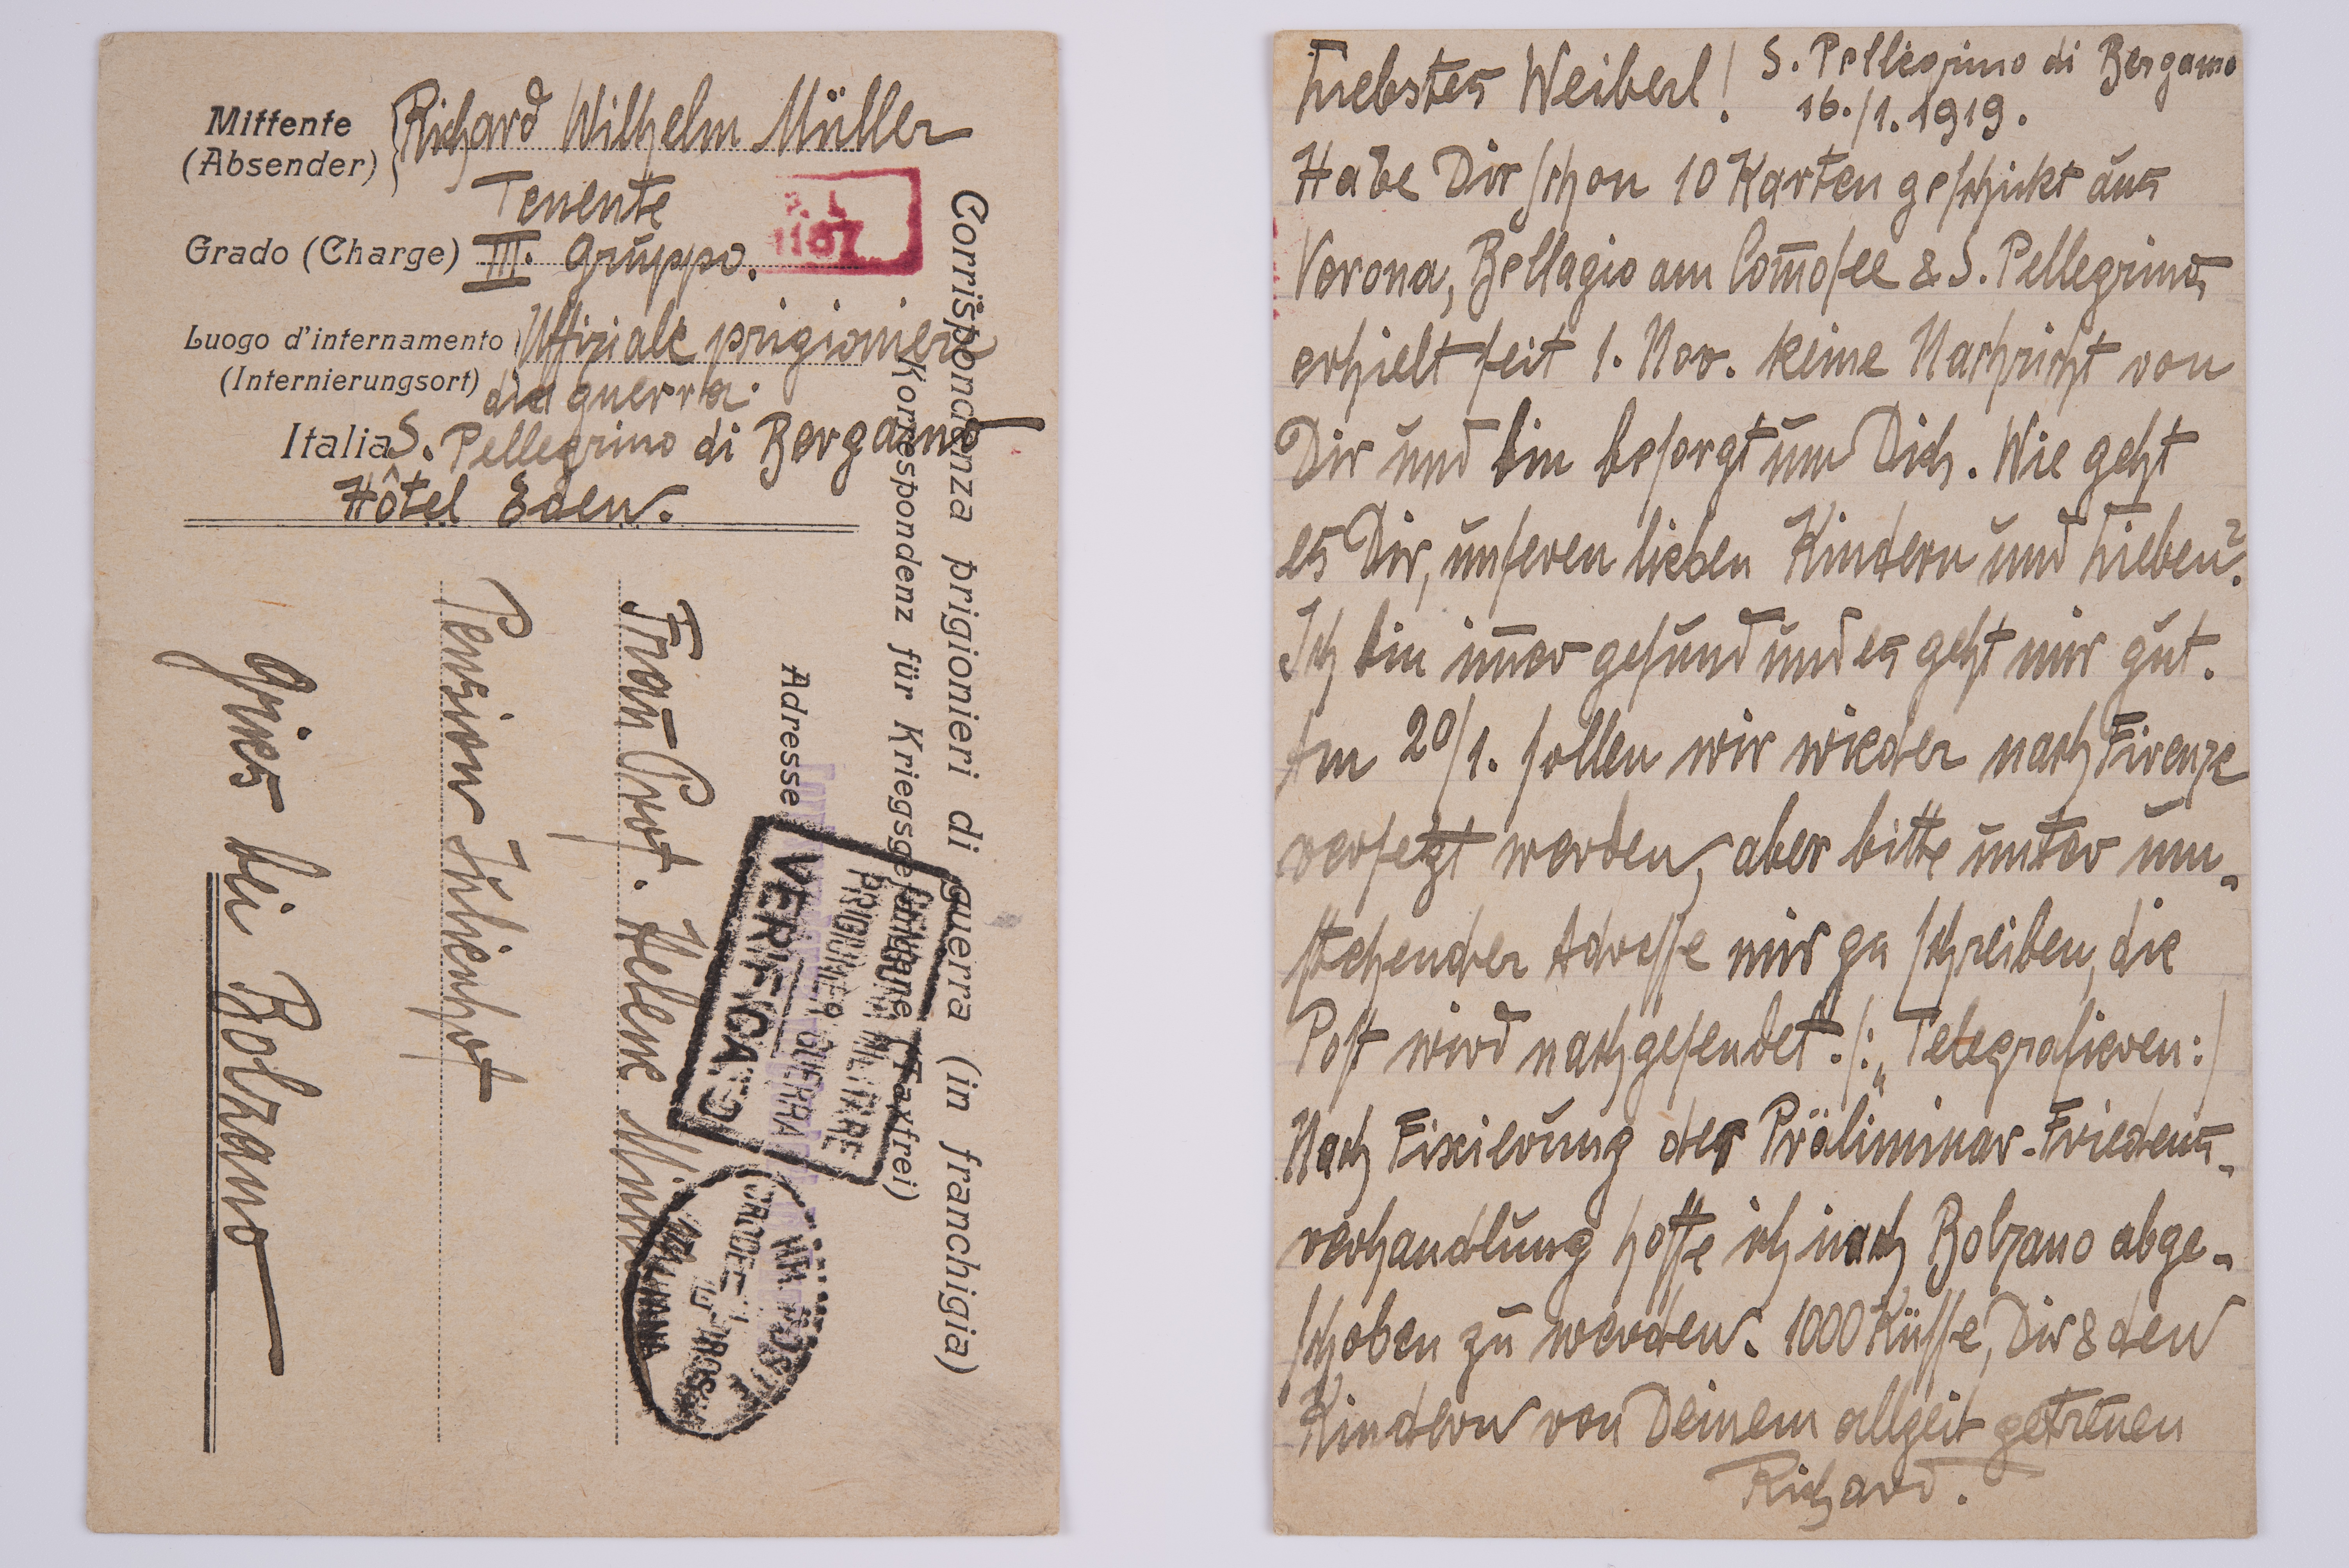 Mittente
(Absender)
Richard Wilhelm Müller
Tenente
Grado (Charge) III. Gruppo.
1187
Luogo d'internamento
(Internierungsort)
Uffiziale prigioniero
di guerra.
Italia S. Pellegrino di Bergamo
Hôtel Eden.
Corrispondenza prigionieri di guerra (in franchigia)
Korrespondenz für Kriegsgefangene (Taxfrei)
Adresse
Frau Prof. Helene
Pension Julienhof
Gries bei Bolzano
CENSURA MILITARE
PRIGIONIERI GUERRA
VERIFICATO
Liebstes Weiberl! S. Pellegrino di Bergamo
16./1. 1919.
Habe Dir schon 10 Karten geschickt aus
Verona, Bellagio am Com̅osee & S. Pellegrino,
erhielt seit 1. Nov. keine Nachricht von
Dir und bin besorgt um Dich. Wie geht
es Dir, unseren lieben Kindern und Lieben?
Ich bin im̅er gesund und es geht mir gut.
Am 20/1. sollen wir wieder nach Firenze
versetzt werden, aber bitte unter um-
stehender Adresse mir zu schreiben, die
Post wird nachgesendet. /: „Telegrafieren :/
Nach Fixierung der Präliminar-Friedens-
verhandlung hoffe ich nach Bolzano abge-
schoben zu werden. 1000 Küsse, Dir & den
Kindern von Deinem allzeit getreuen
Richard.